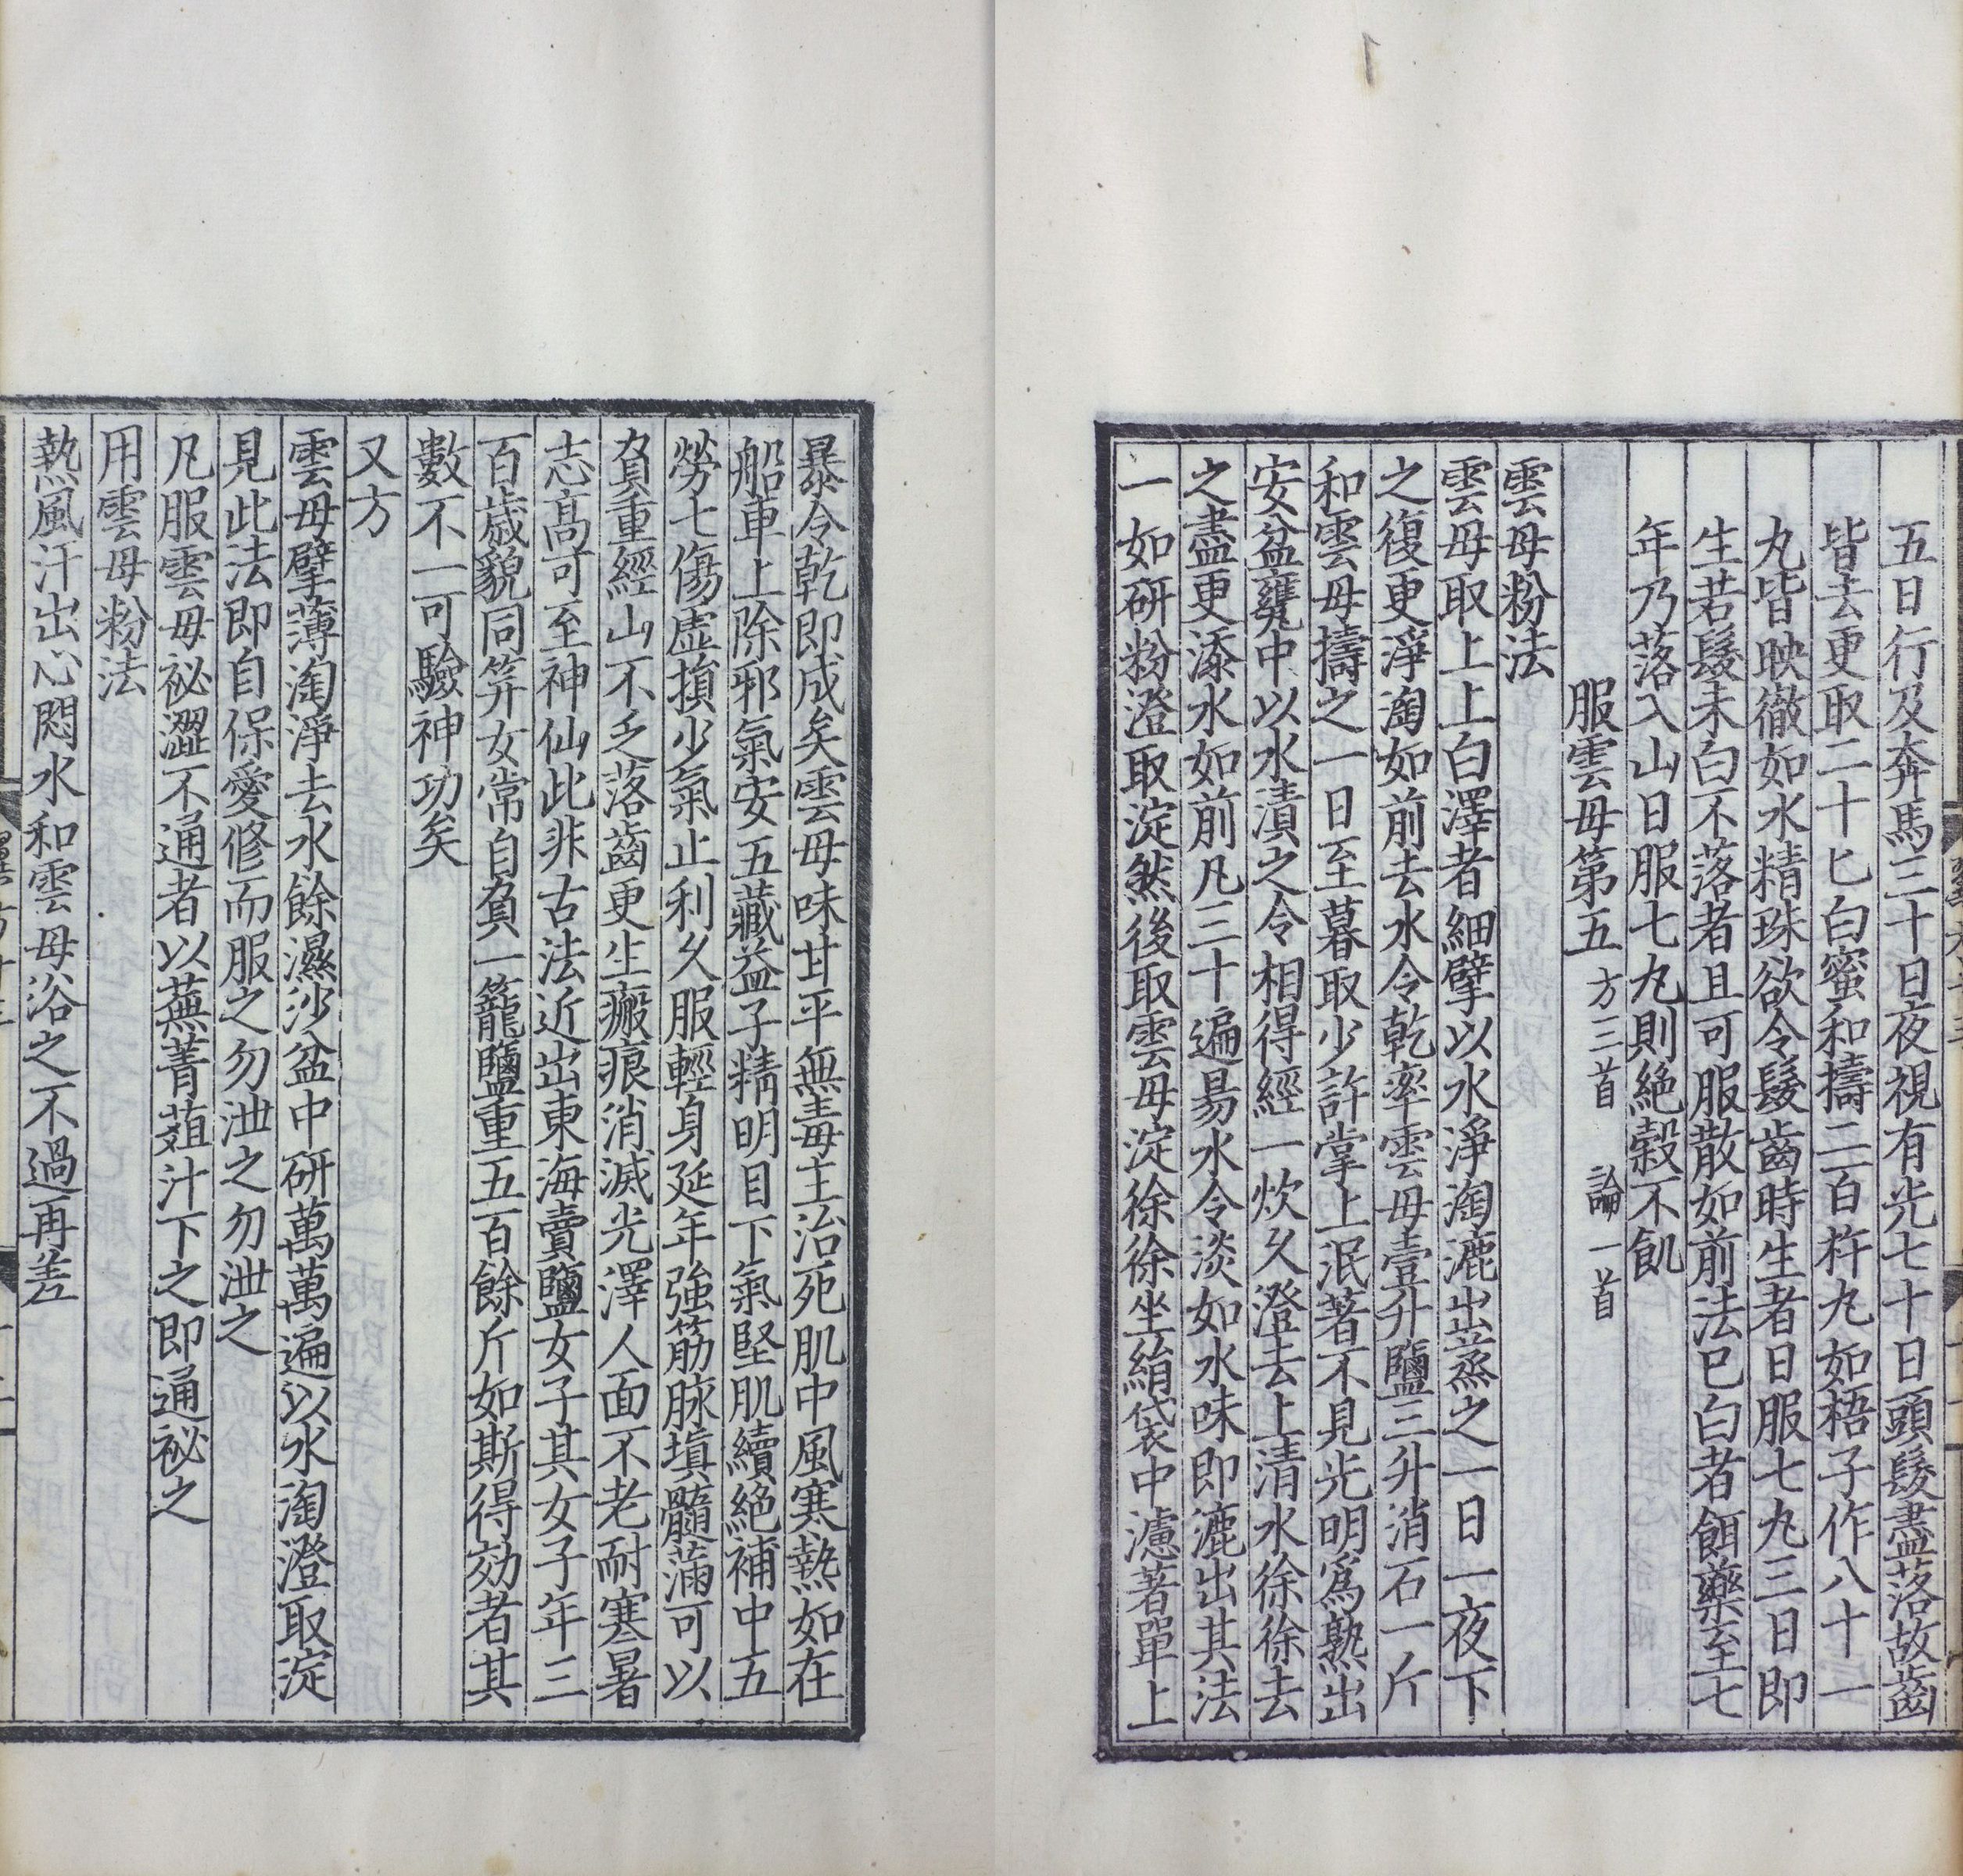 五日行及奔馬三十日夜視有光七十日頭髮盡落故齒
皆去更取二十匕白蜜和擣二百杵丸如梧子作八十一
丸皆映徹如水精珠欲令髮齒時生者日服七丸三日即
生若髮未白不落者且可服散如前法巳白者餌藥至七
年乃落入山日服七丸則絶穀不飢
服雲母第五 方三首 論一首
雲母粉法
雲母取上上白澤者細擘以水淨淘漉出蒸之一日一夜下
之復更淨淘如前去水令乾率雲母壹升鹽三升消石一斤
和雲母擣之一日至暮取少許掌上泯著不見光明爲熟出
安盆甕中以水漬之令相得經一炊久澄去上清水徐徐去
之盡更添水如前凡三十遍易水令淡如水味即漉出其法
一如研粉澄取淀然後取雲母淀徐徐坐絹袋中濾著單上
暴令乾即成矣雲母味甘平無毒主治死肌中風寒熱如在
船車上除邪氣安五藏益子精明目下氣堅肌續絶補中五
勞七傷虛損少氣止利久服輕身延年強筋脉塡髓滿可以
負重經山不乏落齒更生瘢痕消滅光澤人面不老耐寒暑
志髙可至神仙此非古法近出東海賣鹽女子其女子年三
百歲貌同笄女常自負一籠鹽重五百餘斤如斯得効者其
數不一可驗神功矣
又方
雲母擘薄淘淨去水餘濕沙盆中研萬萬遍以水淘澄取淀
見此法即自保愛修而服之勿泄之勿泄之
凡服雲母祕澀不通者以蕪菁葅汁下之即通祕之
用雲母粉法
熱風汗出心悶水和雲母浴之不過再差